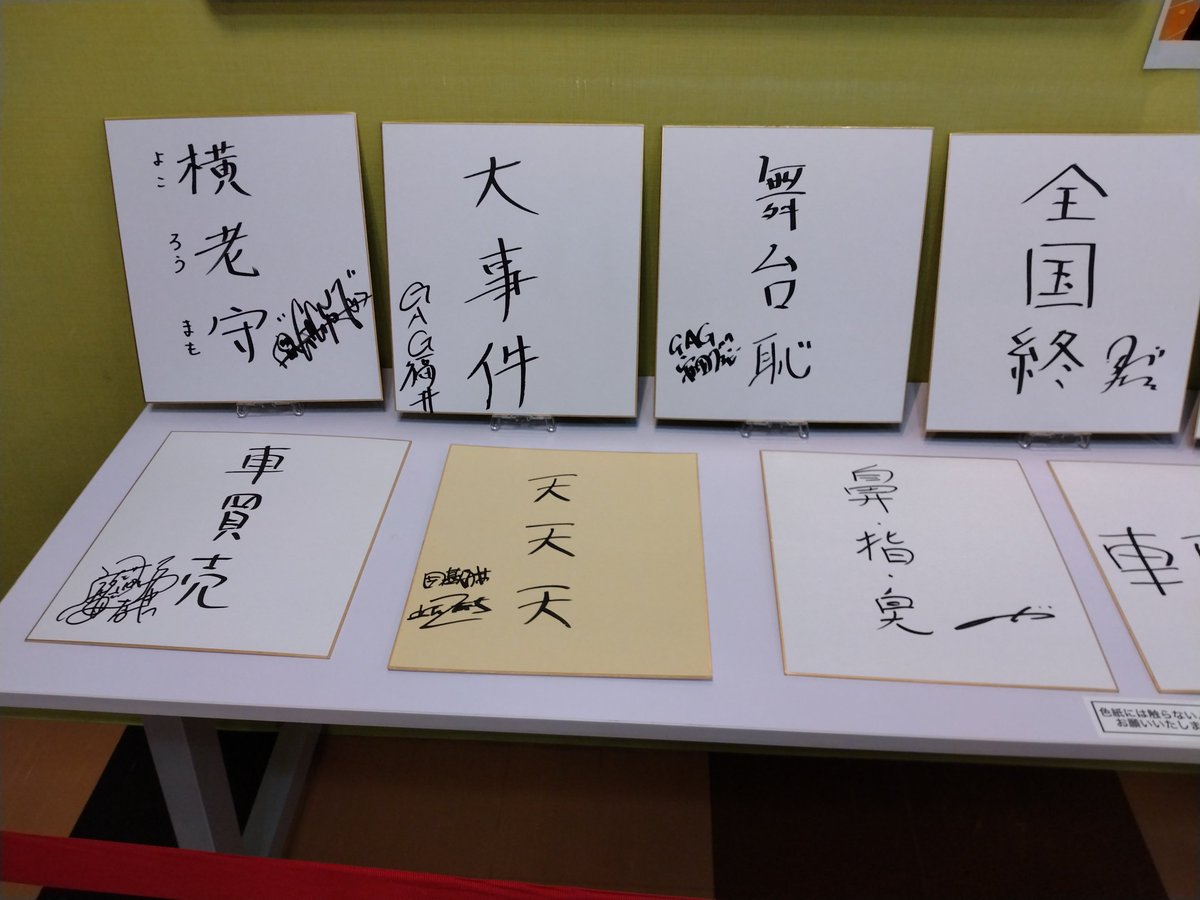 横老守
よころうまも
大事件
GAG福井
舞台恥
GAG
全国終
車買売
天天天
鼻・指・臭
車
色紙には触らない
お願いいたしま